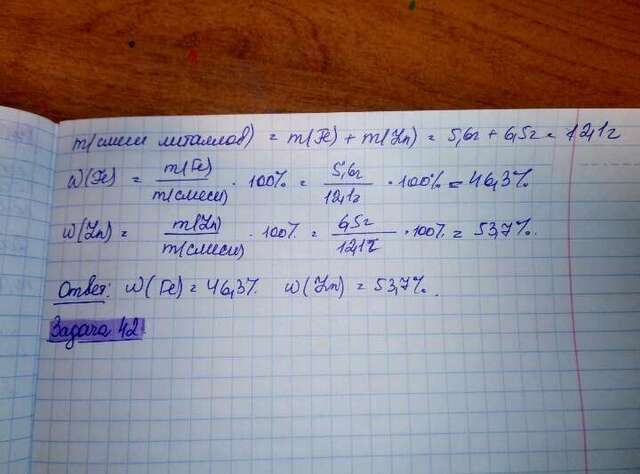 m(смеси металлов) = m(Fe) + m(Zn) = 5,6г + 6,5г = 12,1г
W(Fe) = m(Fe) / m(смеси) · 100% = 5,6г / 12,1г · 100% = 46,3%
W(Zn) = m(Zn) / m(смеси) · 100% = 6,5г / 12,1г · 100% = 53,7%.
Ответ: W(Fe) = 46,3% W(Zn) = 53,7%.
Задача 42